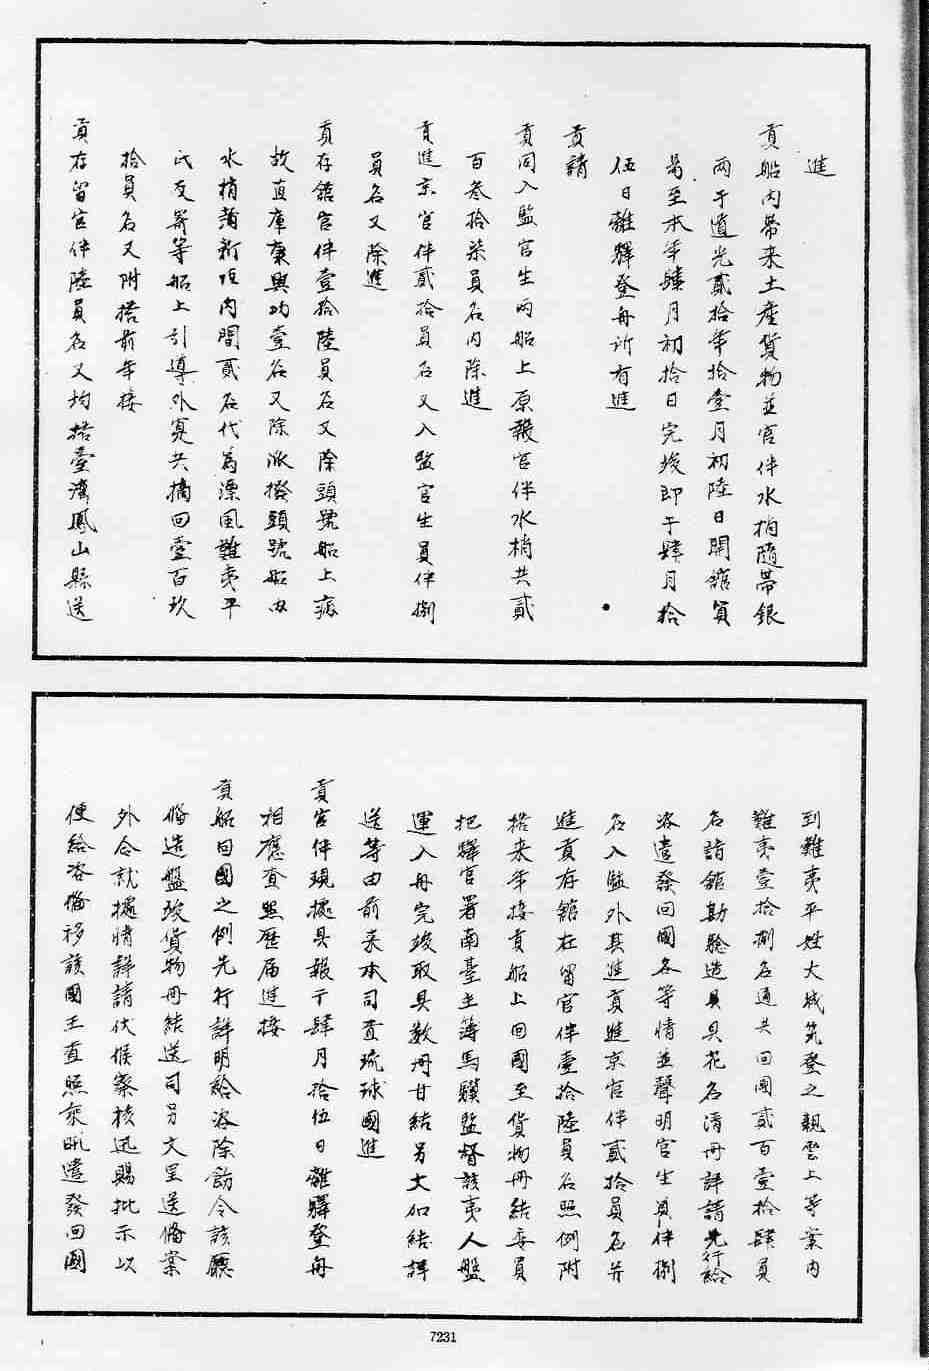 進
貢船內帶來土產貨物並官伴水梢隨帶銀
兩于道光貳拾年拾壹月初陸日開館貿
易至本年肆月初拾日完竣即于肆月拾
伍日離驛登舟所有進
貢請
貢同入監官生兩船上原報官伴水梢共貳
百叁拾柒員名內除進
貢進京官伴貳拾員名又入監官生員伴捌
員名又除進
貢存館官伴壹拾陸員名又除頭號船上病
故直庫康興功壹名又除派撥頭號船內
水梢 新垣內間貳名代為漂風難夷平
氏友寄等船上引導外寔共摘回壹百玖
拾員名又附搭前年接
貢存留官伴陸員名又均搭臺灣鳳山縣送
到難夷平姓大城筑登之親雲上等案內
難夷壹拾捌名通共回國貳百壹拾肆員
名詣館勘驗造具具花名清冊詳請先行給
咨遣發回國各等情並聲明官生員伴捌
名入監外其進貢進京官伴貳拾員名并
進貢存館在留官伴壹拾陸員名照例附
搭來年接貢船上回國至貨物冊結委員
把驛官署南臺主簿馬驥監督該夷人盤
運入舟完竣取具數冊甘結另文加結詳
送等由前來本司查琉球國進
貢官伴現據具報于肆月拾伍日離驛登舟
相應查照歷届進接
貢船回國之例先行詳明給咨除飭令該廳
俻造盤驗貨物冊結送司另文呈送俻案
外合就據情詳請伏候察核迅賜批示以
便給咨俻移該國王查照 遣發回國
7231